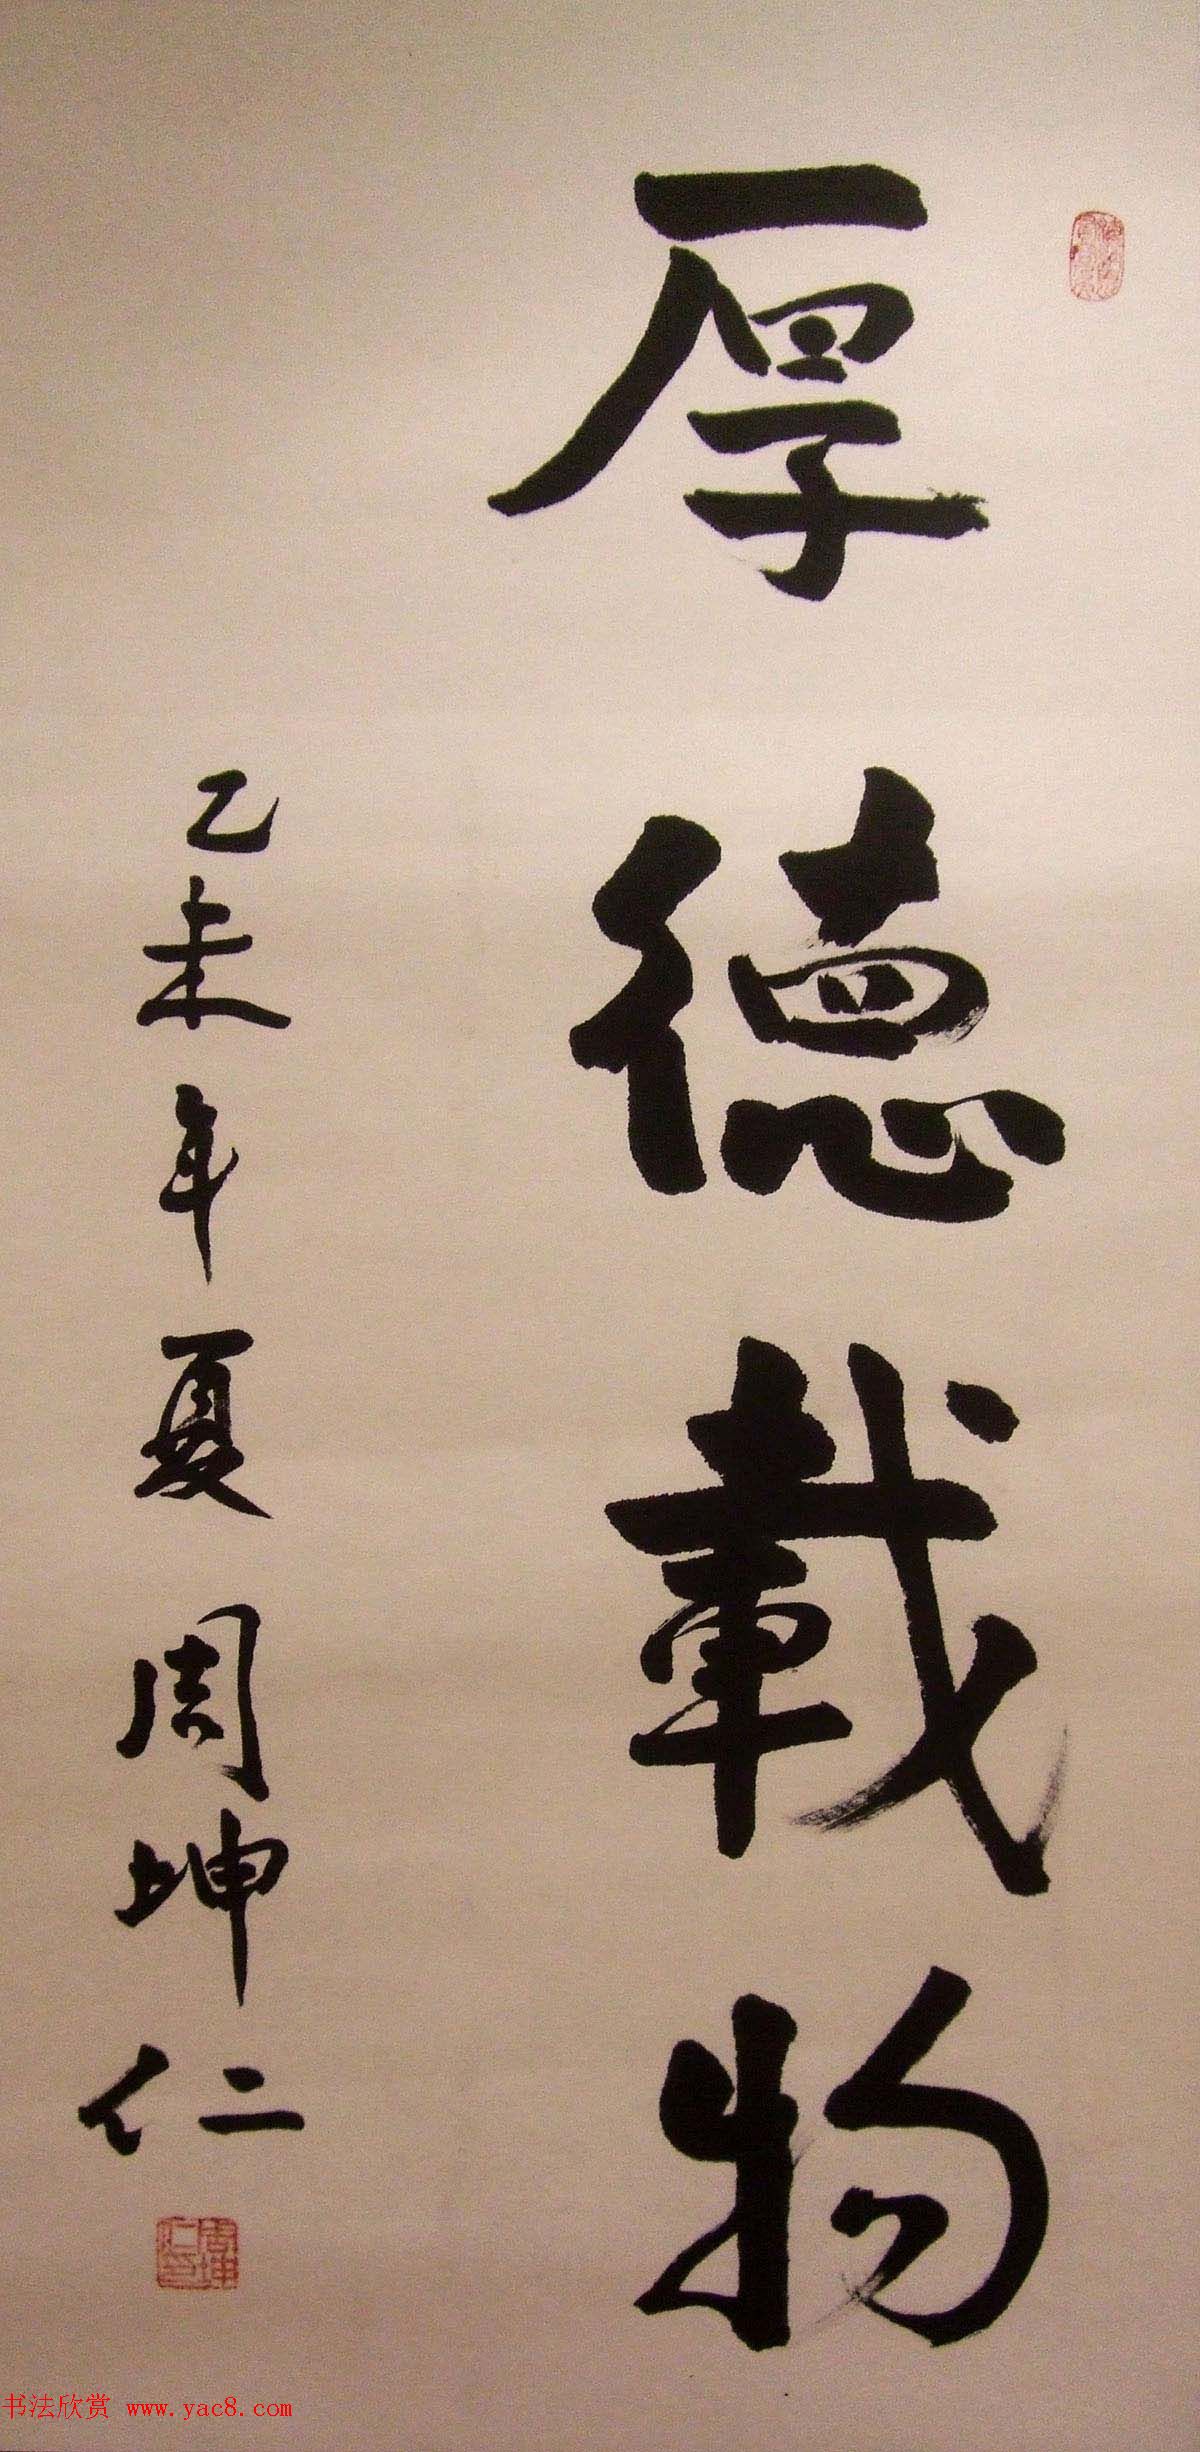 厚德載物
乙未年夏 周坤仁
周坤仁印
书法欣赏 www.yac8.com